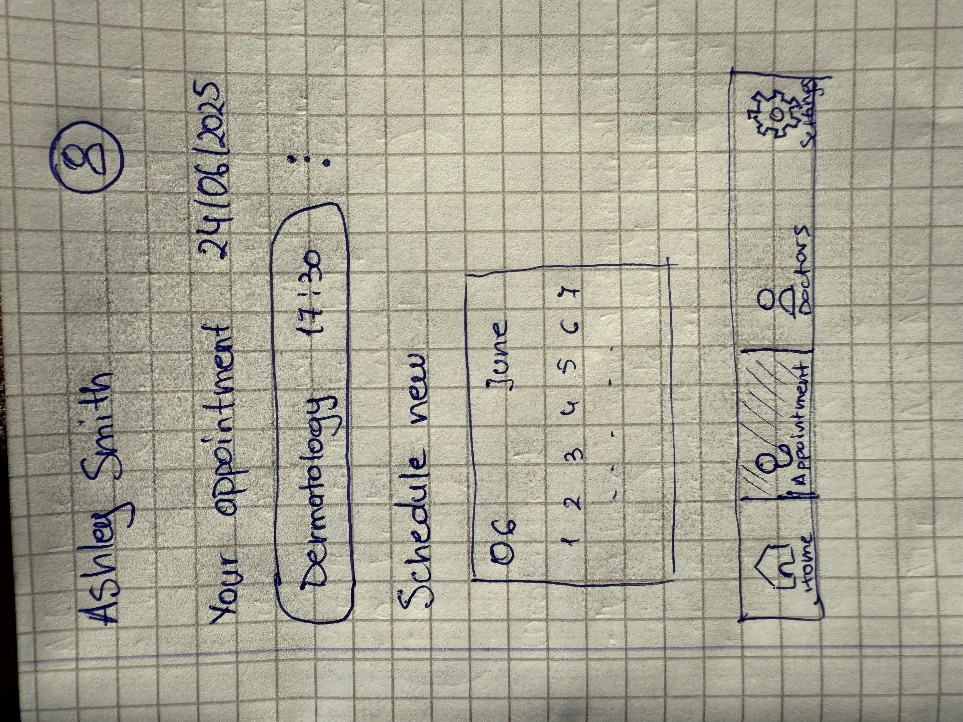 Ashley Smith
Your appointment 24/06/2025
Dermatology 17:30
Schedule new
06 June
1 2 3 4 5 6 7
Home Appointment Doctors Settings